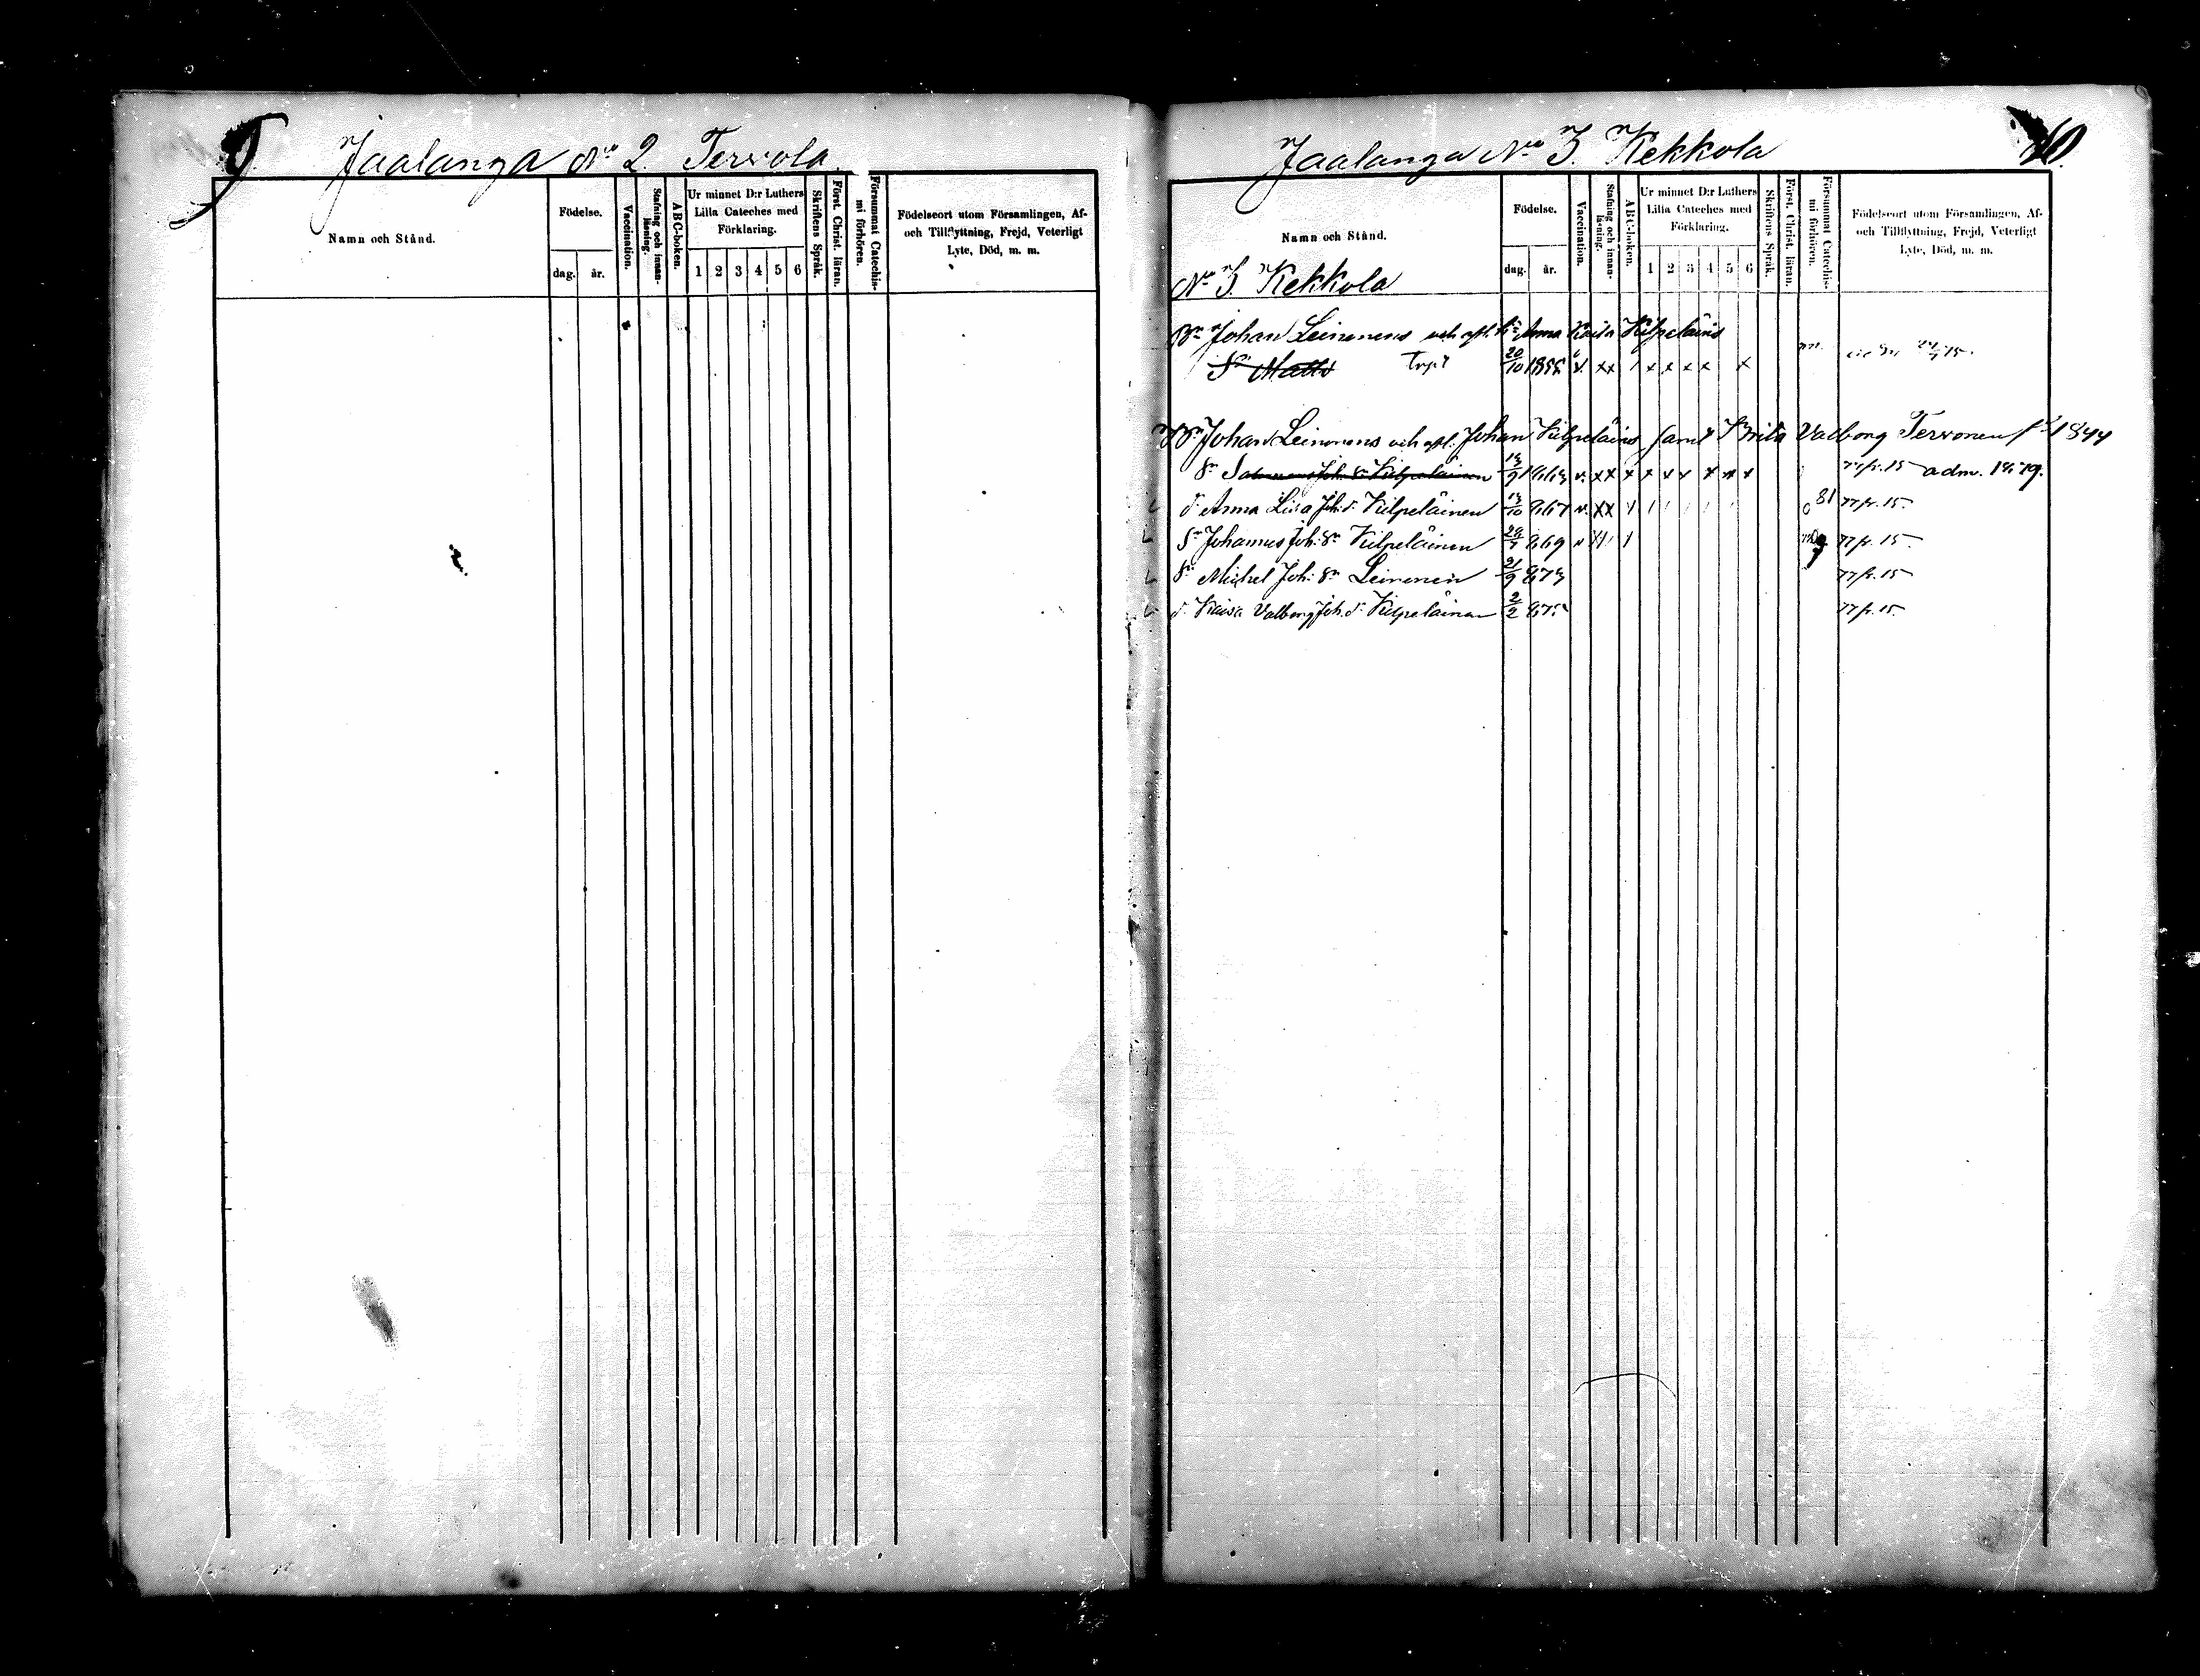 9. Jaalanga No 2 Tervola
Namn och Stånd.
Födelse.
dag. år.
Vaccination.
Stafning och innan-
läsning.
ABC-boken.
Ur minnet D:r Luthers
Lilla Cateches med
Förklaring.
1 2 3 4 5 6
Skriftens Språk.
Först. Christ. läran.
Försummat Catechis-
mi förhören.
Födelseort utom Församlingen, Af-
och Tillflyttning, Frejd, Veterligt
Lyte, Död, m. m.
Jaalanga No 3. Kekkola 10.
Namn och Stånd.
Födelse.
dag. år.
Vaccination.
Stafning och innan-
läsning.
ABC-boken.
Ur minnet D:r Luthers
Lilla Cateches med
Förklaring.
1 2 3 4 5 6
Skriftens Språk.
Först. Christ. läran.
Försummat Catechis-
mi förhören.
Födelseort utom Församlingen, Af-
och Tillflyttning, Frejd, Veterligt
Lyte, Död, m. m.
No 3. Kekkola
Bn Johan Leinonens och afl. Anna Kaisa Kilpeläins
Sn Matts 20/10
Johan Leinonens och afl. Johan Kilpeläins samt Brita Valborg Tervonen 1844
Sn Joh. Sn Kilpeläinen 13/9 863 adm. 1879.
d. Anna Liisa Joh. d. Kilpeläinen 13/10 867 81 77 fr. 15
Sn Johannes Joh. Sn Kilpeläinen 869 77 fr. 15
Sn Michel Joh. Sn Leinonen 21/9 873 77 fr. 15
d. Kaisa Valborg Joh. d. Kilpeläinen 2/2 875 77 fr. 15